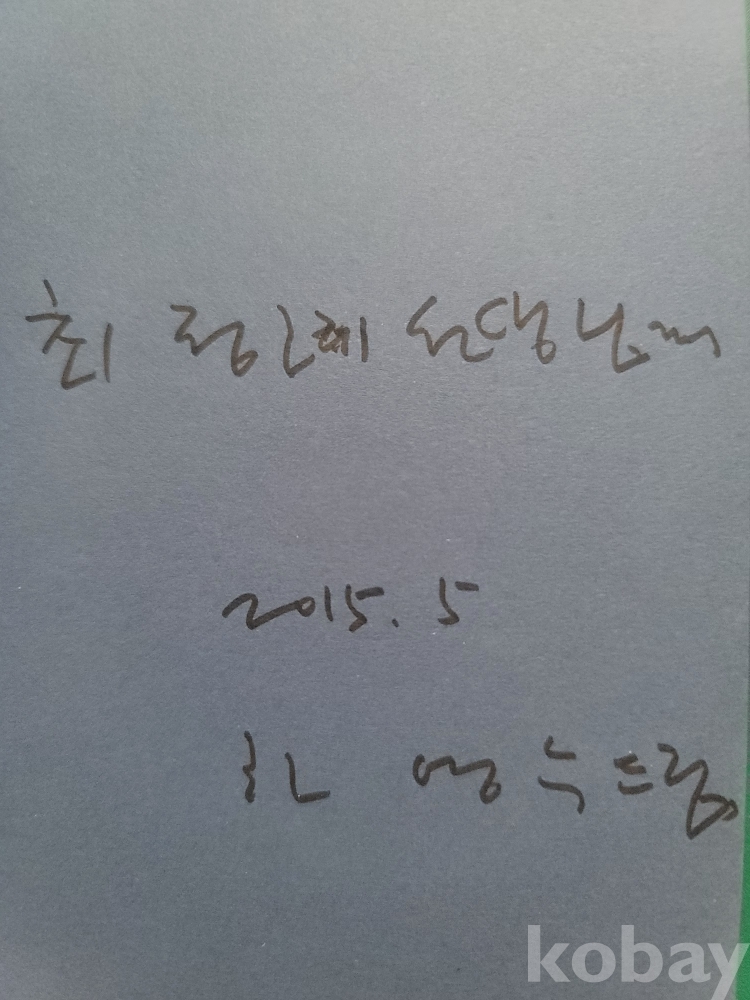 최 정례 선생님께
2015. 5
한 영수 드림
kobay